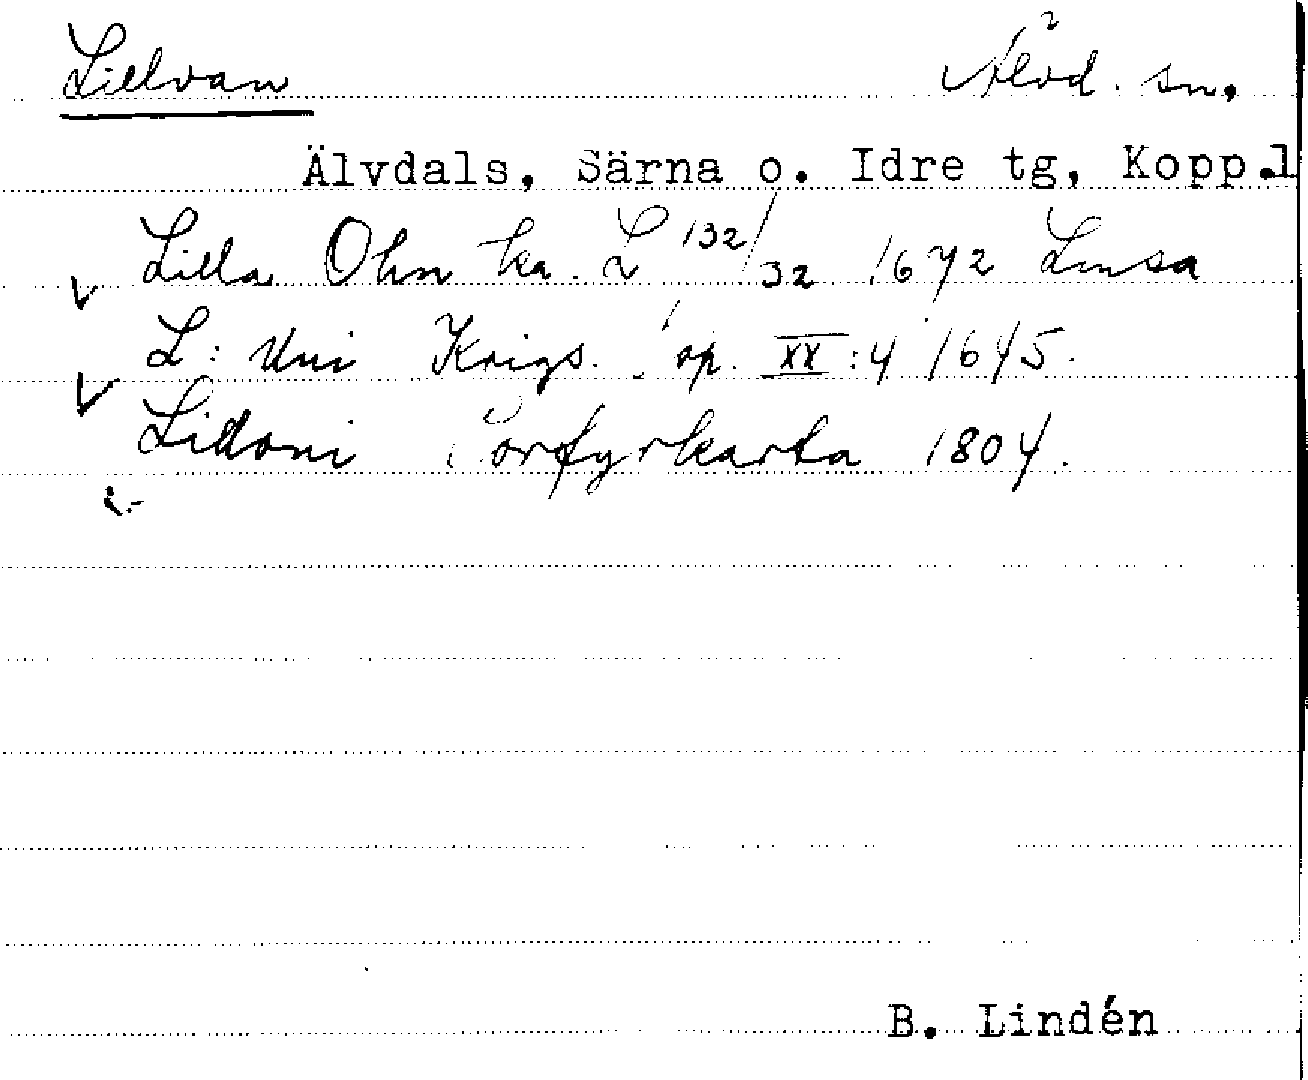 Lillvan Älvd. sn.
Älvdals, Särna o. Idre tg, Kopp.l
Lilla Ohn ka. L 132/32 1672 Lmsa
L: Uni Krigs. op. XX:4 1645.
Lidoni Porfyrkarta 1804.
B. Lindén